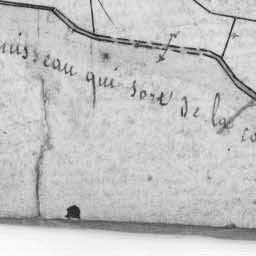 ruisseau qui sort de la